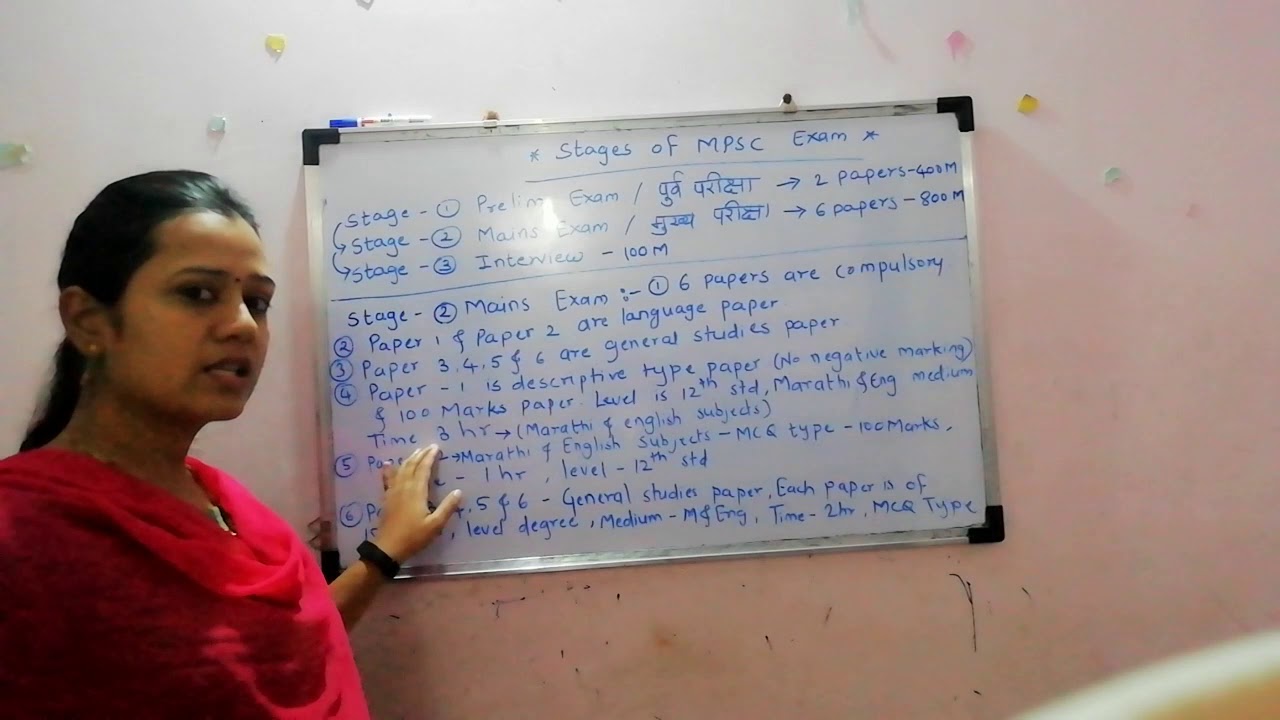 * Stages of MPSC Exam *
Stage - ① Prelim Exam / पुर्व परीक्षा → 2 papers - 400M
Stage - ② Mains Exam / मुख्य परीक्षा → 6 papers - 800M
Stage - ③ Interview - 100M
Stage - ② Mains Exam :- ① 6 papers are compulsory
② Paper 1 & Paper 2 are language paper.
③ Paper 3,4,5 & 6 are general studies paper
④ Paper - 1 is descriptive type paper (No negative marking)
& 100 Marks paper. Level is 12th std, Marathi & Eng medium
Time 3 hr → (Marathi & english subjects)
⑤ 2 → Marathi & English Subjects - MCQ type - 100 Marks,
- 1 hr, level - 12th std
⑥ 4, 5 & 6 - General studies paper, Each paper is of
, level degree, Medium - M & Eng, Time - 2hr, MCQ Type